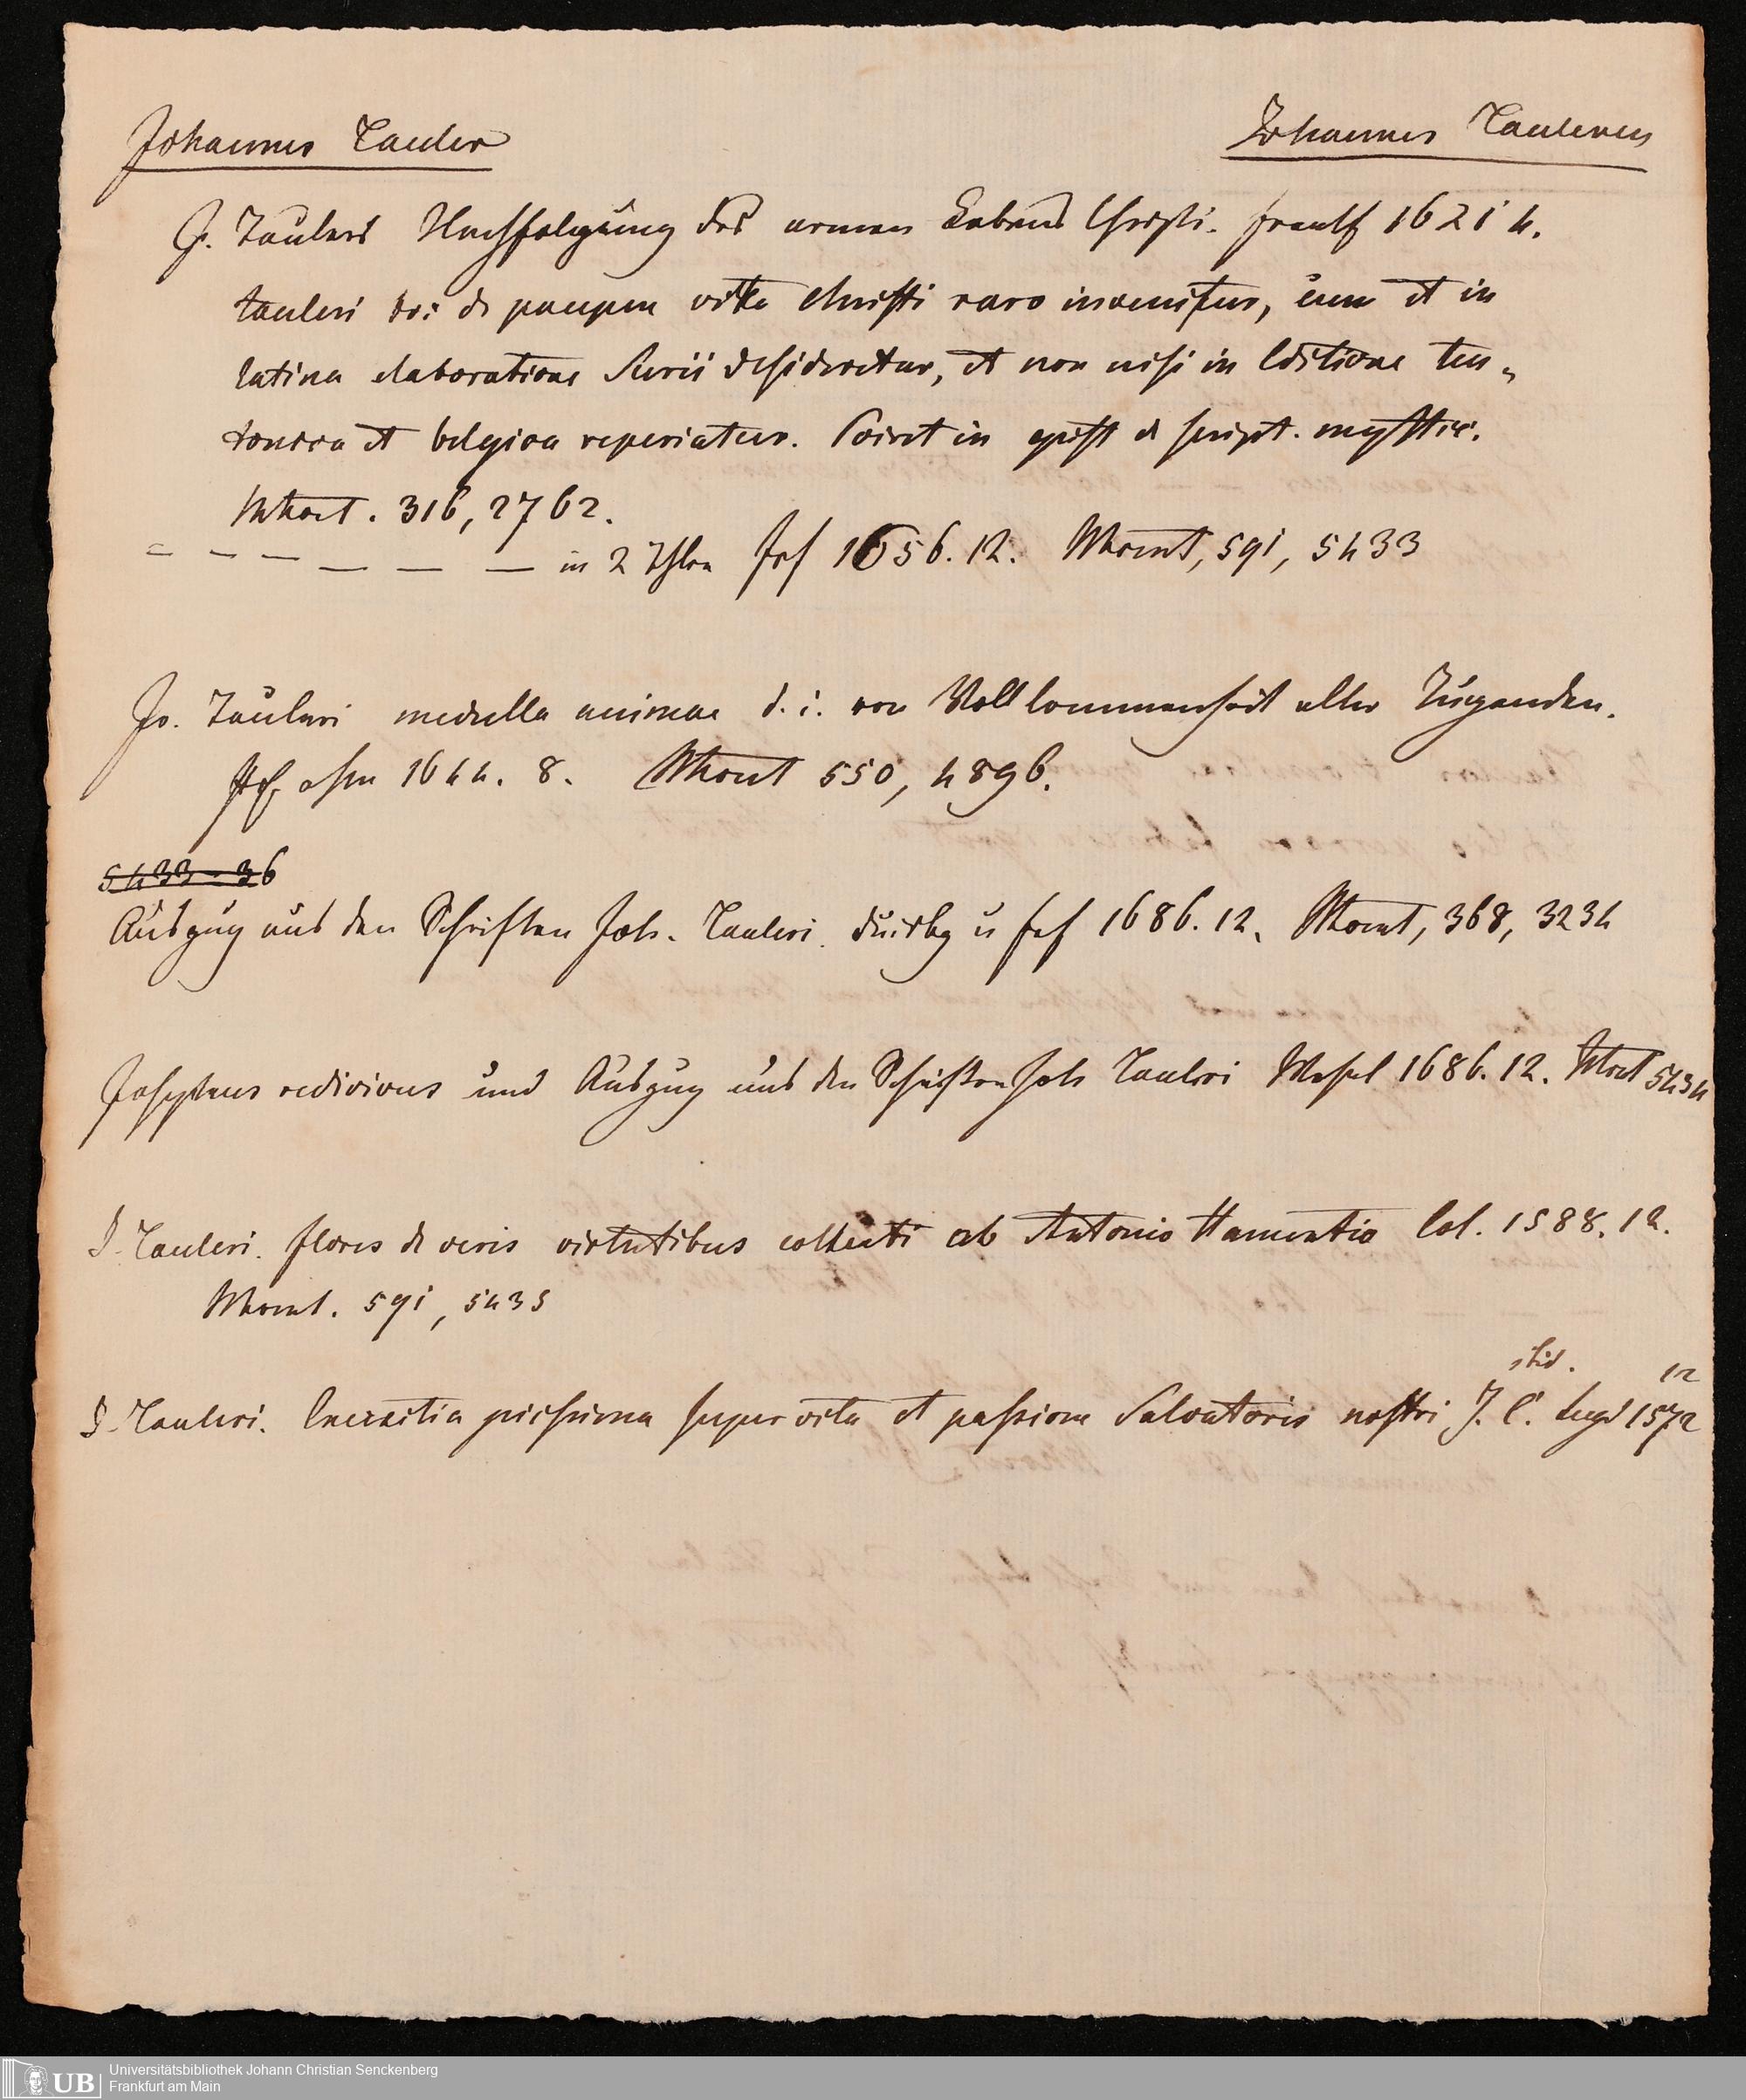 Johannes Tauler
Johannes Taulerus
J. Taulers Nachfolgung des armen Lebens Christi. Franckf 1621 4.
tauleri de paupera vita Christi raro invenitur, cum et in
latina elaboratione Surii desideretur, et non nisi in Editione teu-
tonica et belgica reperiatur. Poiret in epist d script. mystic.
316, 2762.
– – – – – – in 2 Thlen Frf 1656. 12. 591, 5433
Jo. Tauleri medulla animae d. i. von Vollkommenheit aller Tugenden.
Ff. a/m 1644. 8. 550, 4896.
5433-36
Auszug aus den Schriften Joh. Tauleri. Duisbg u Frf 1686. 12. 368, 3234
Josephus redivivus und Auszug aus den Schriften Joh Tauleri Wesel 1686. 12. 5434
J. Tauleri. flores de veris virtutibus collecti ab Antonio Hamentio Col. 1588. 12.
591, 5435
ibid. 12
J. Tauleri. Exercitia piissima super vita et passione Salvatoris nostri J. C. Lugd 1572
Universitätsbibliothek Johann Christian Senckenberg
UB Frankfurt am Main